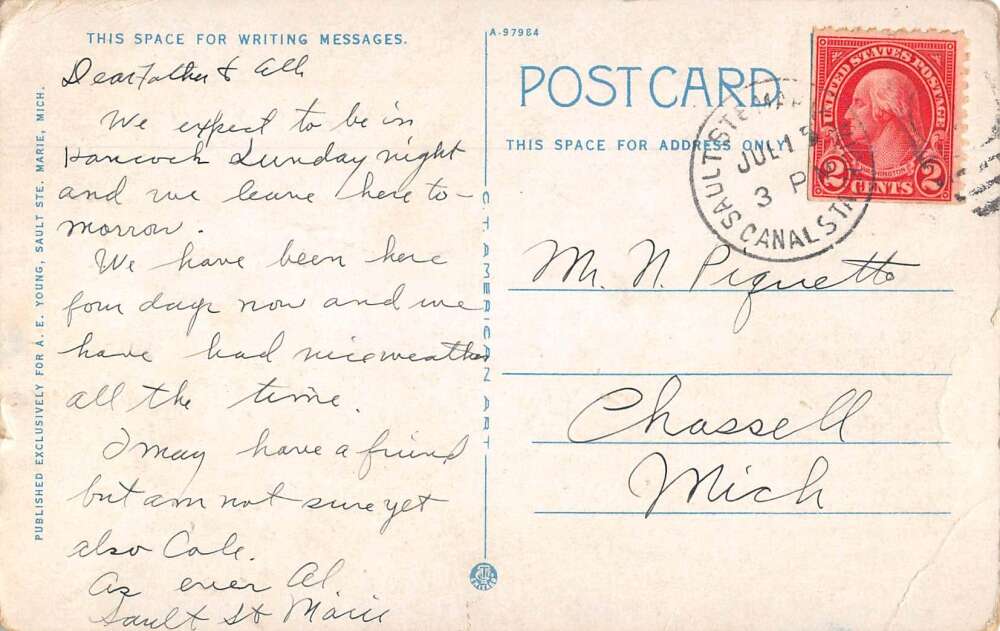 THIS SPACE FOR WRITING MESSAGES.
Dear Father & All
We expect to be in
Hancock Sunday night
and we leave here to-
morrow.
We have been here
four days now and we
have had nice weather
all the time.
I may have a friend
but am not sure yet
also Cole.
As ever Al.
Sault St Marie
PUBLISHED EXCLUSIVELY FOR A. E. YOUNG, SAULT STE. MARIE, MICH.
C. T. AMERICAN ART
A-97984
POST CARD
THIS SPACE FOR ADDRESS ONLY
SAULT STE. MARIE
JUL 15
3 P
CANAL STN
UNITED STATES POSTAGE
WASHINGTON
2 CENTS 2
Mr. N. Piquette
Chassell
Mich